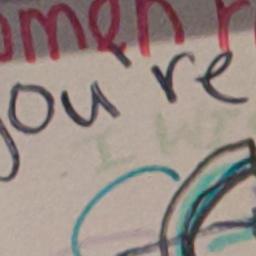 omen
you're
I WI